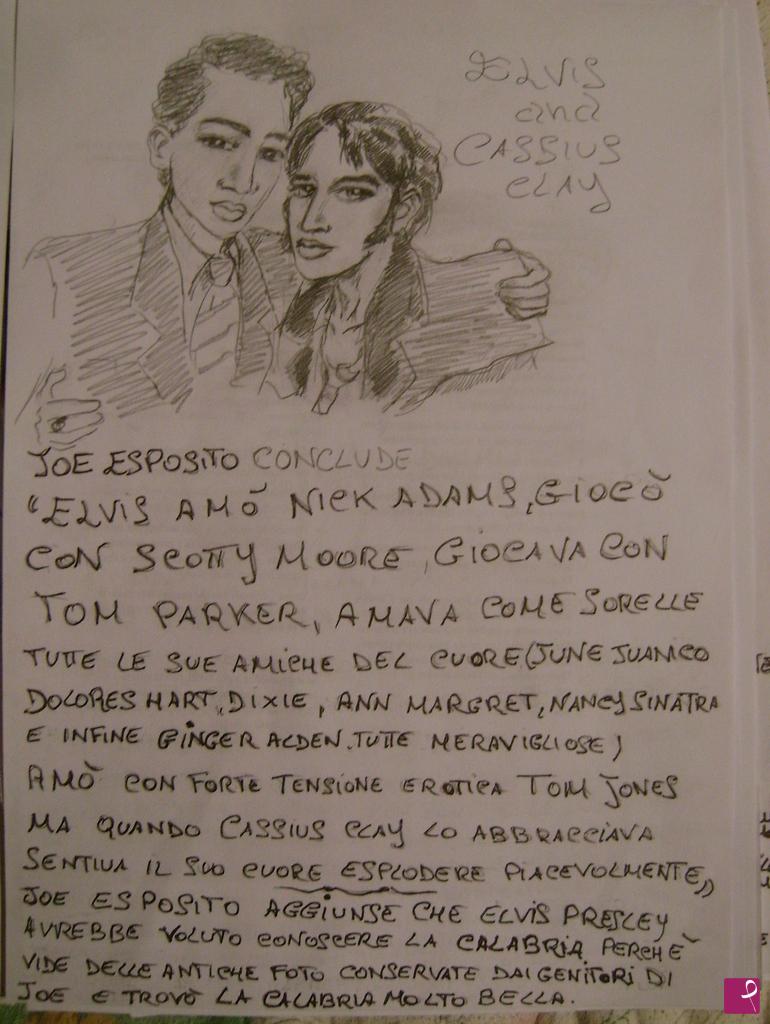 ELVIS
and
CASSIUS
CLAY
JOE ESPOSITO CONCLUDE
"ELVIS AMÒ NICK ADAMS, GIOCÒ
CON SCOTTY MOORE, GIOCAVA CON
TOM PARKER, AMAVA COME SORELLE
TUTTE LE SUE AMICHE DEL CUORE (JUNE JUANICO
DOLORES HART, DIXIE, ANN MARGRET, NANCY SINATRA
E INFINE GINGER ALDEN. TUTTE MERAVIGLIOSE)
AMÒ CON FORTE TENSIONE EROTICA TOM JONES
MA QUANDO CASSIUS CLAY LO ABBRACCIAVA
SENTIVA IL SUO CUORE ESPLODERE PIACEVOLMENTE,"
JOE ESPOSITO AGGIUNSE CHE ELVIS PRESLEY
AVREBBE VOLUTO CONOSCERE LA CALABRIA PERCHÈ
VIDE DELLE ANTICHE FOTO CONSERVATE DAI GENITORI DI
JOE E TROVÒ LA CALABRIA MOLTO BELLA.